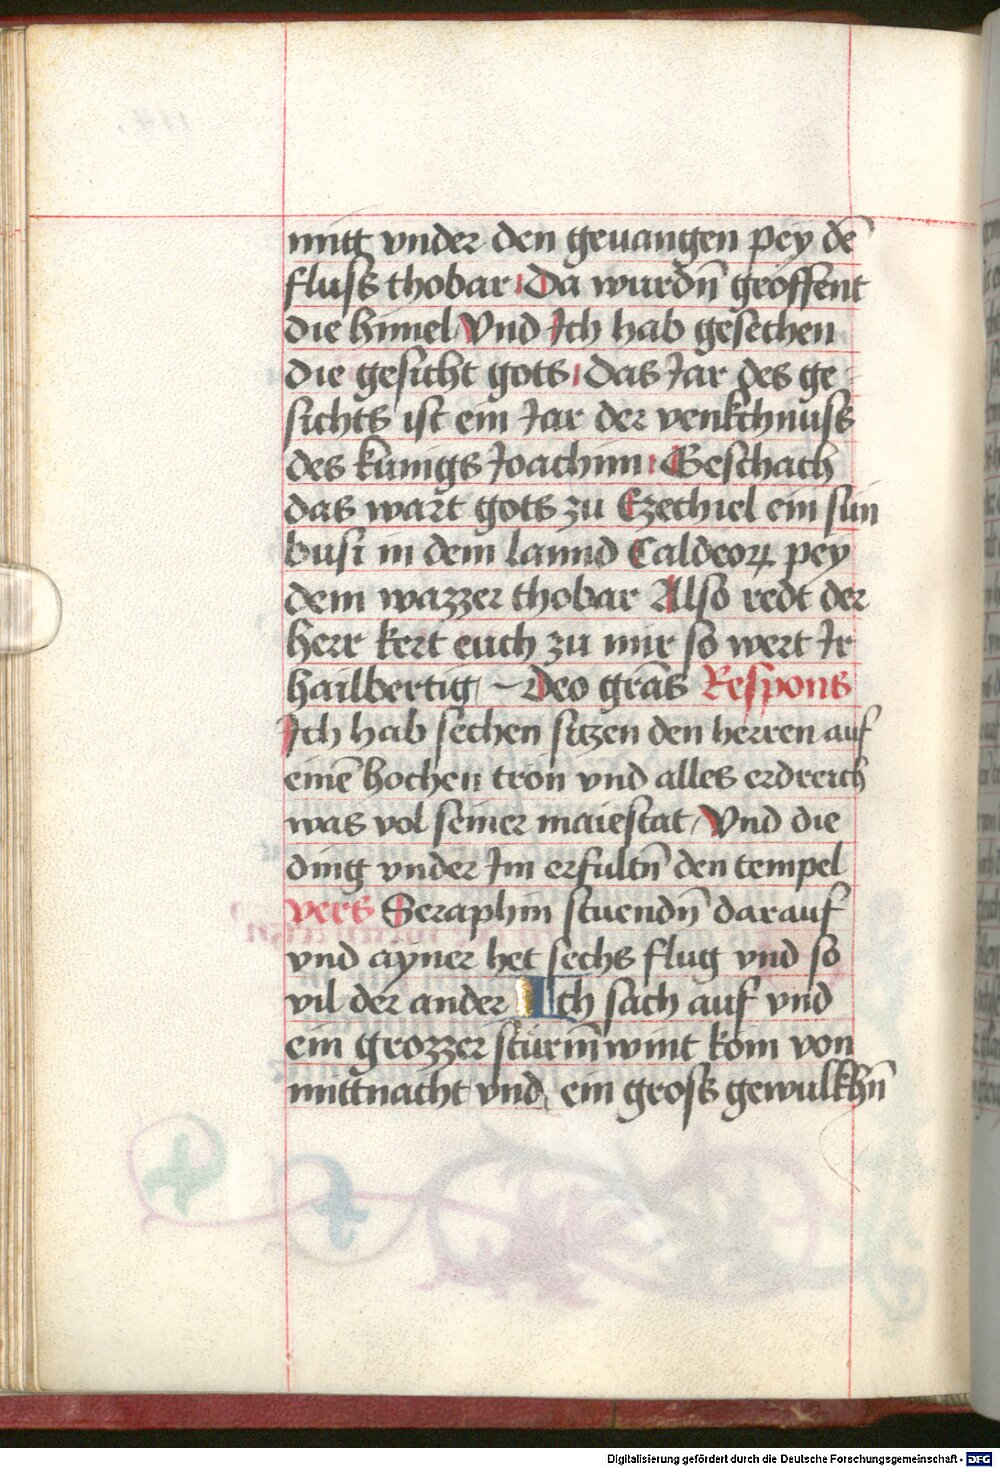 mitt vnder den geuangen pey dē
fluss thobar Da wurdn̄ gröffent
die himel Vnd Ich hab gesechen
die gesicht gots Das Jar des ge
sichts ist ein Jar der venkchnuss
des kunigs Joachim Geschach
das wart gots zu Ezechiel ein sun
busi in dem lannd Caldeoꝝ pey
dem wazzer thobar Also redt der
herr kert euch zu mir so wert Ir
hailbertig Deo grās Respons
Ich hab sechen sitzen den herren auf
einē hochen tron vnd alles erdreich
was vol seiner maiestat Vnd die
ding vnder Im erfultn̄ den tempel
vers Seraphin stuendn̄ darauf
vnd ayner het sechs flug vnd so
vil der ander Ich sach auf vnd
ein grozzer sturm̄ wint kom von
mittnacht vnd ein gross gewulkhn̄
Digitalisierung gefördert durch die Deutsche Forschungsgemeinschaft - DFG